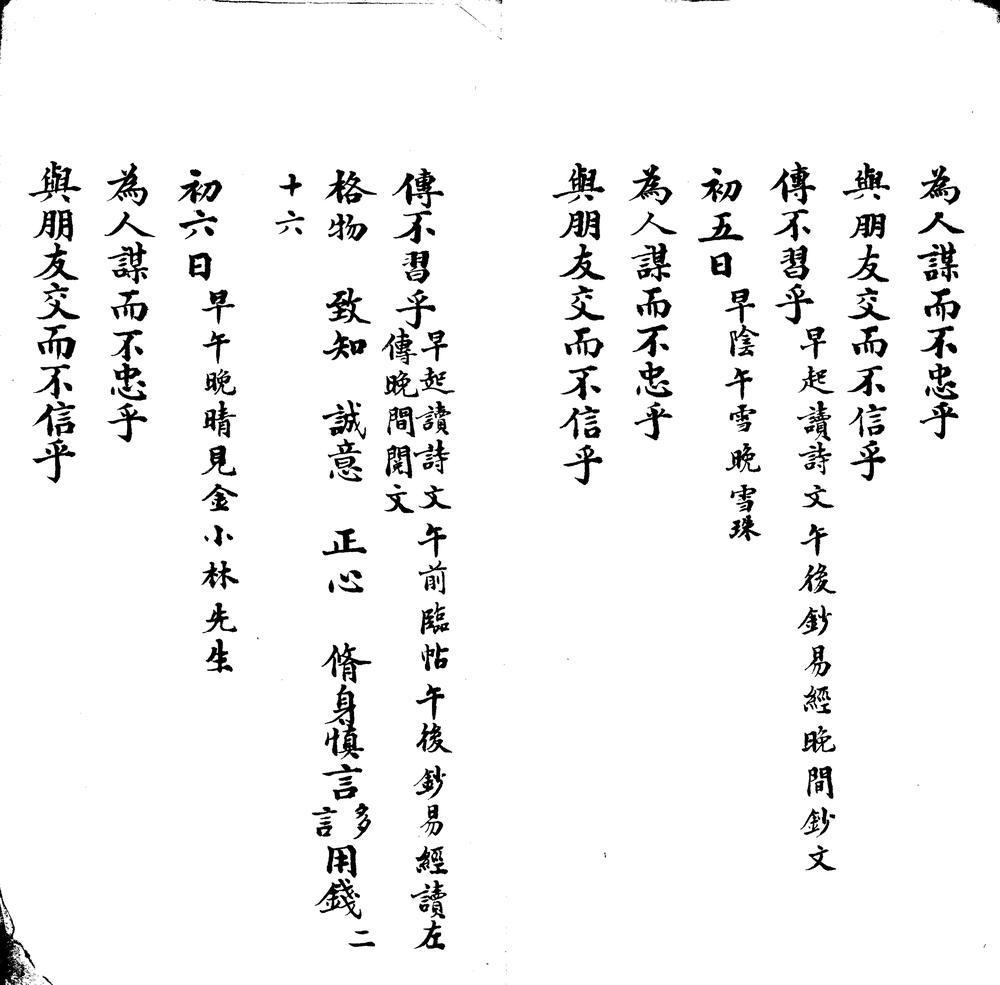 為人謀而不忠乎
與朋友交而不信乎
傳不習乎早起讀詩文午後鈔易經晚間鈔文
初五日早陰午雪晚雪珠
為人謀而不忠乎
與朋友交而不信乎
傳不習乎早起讀詩文午前臨帖午後鈔易經讀左
傳晚間閱文
格物 致知 誠意 正心 脩身慎言多言用錢二
十六
初六日早午晚晴見金小林先生
為人謀而不忠乎
與朋友交而不信乎